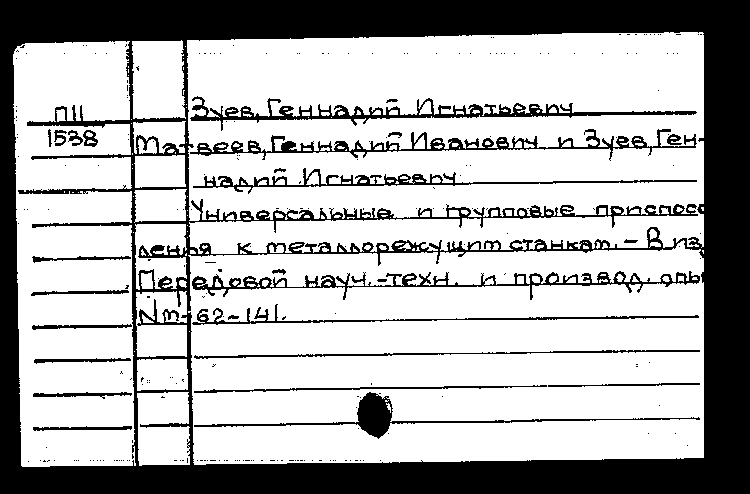 П11
1538
Зуев, Геннадий Игнатьевич
Матвеев, Геннадий Иванович и Зуев, Ген-
надий Игнатьевич
Универсальные и групповые приспосо
ления к металлорежущим станкам. - В из
Передовой науч.-техн. и производ. опы
№ m-62-141.